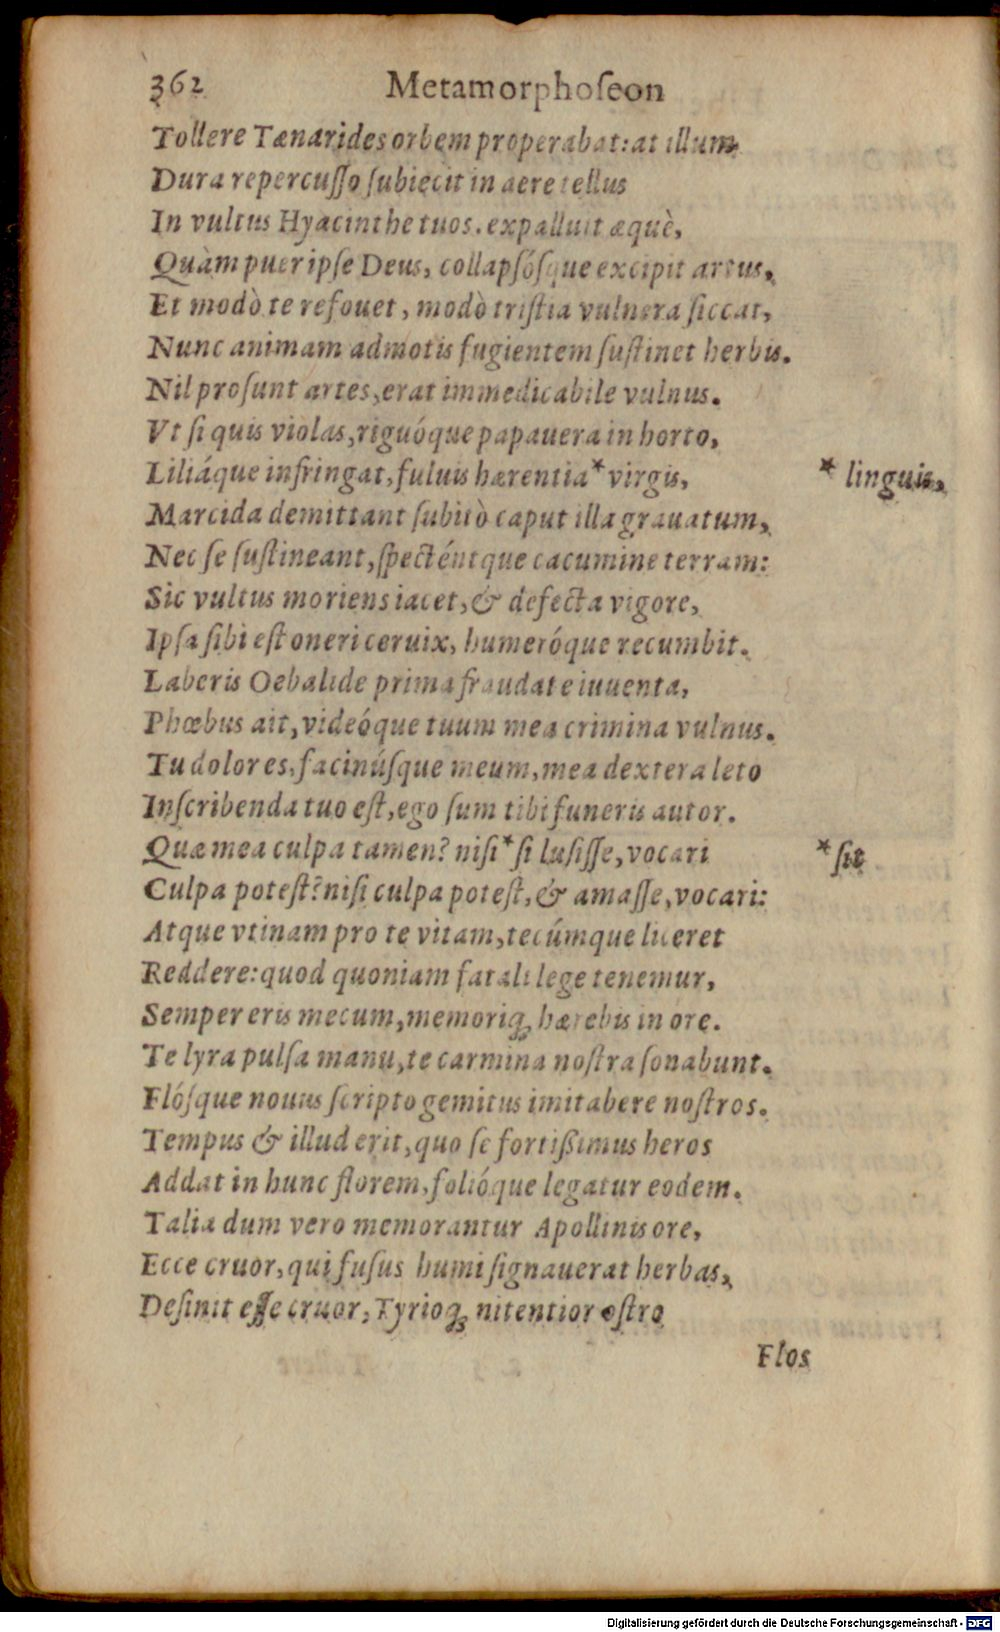 362 Metamorphoſeon
Tollere Tænarides orbem properabat: at illum
Dura repercuſſo ſubiecit in aere tellus
In vultus Hyacinthe tuos. expalluit æquè,
Quàm puer ipſe Deus, collapſóſque excipit artus,
Et modò te refouet, modò triſtia vulnera ſiccat,
Nunc animam admotis fugientem ſuſtinet herbis.
Nil proſunt artes, erat immedicabile vulnus.
Vt ſi quis violas, riguóque papauera in horto,
Liliáque infringat, fuluis hærentia * virgis,
* linguis,
Marcida demittant ſubitò caput illa grauatum,
Nec ſe ſuſtineant, ſpecténtque cacumine terram:
Sic vultus moriens iacet, & defecta vigore,
Ipſa ſibi eſt oneri ceruix, humeróque recumbit.
Laberis Oebalide prima fraudate iuuenta,
Phœbus ait, videóque tuum mea crimina vulnus.
Tu dolor es, facinúſque meum, mea dextera leto
Inſcribenda tuo eſt, ego ſum tibi funeris autor.
Quæ mea culpa tamen? niſi * ſi luſiſſe, vocari
* ſit
Culpa poteſt? niſi culpa poteſt, & amaſſe, vocari:
Atque vtinam pro te vitam, tecúmque liceret
Reddere: quod quoniam fatali lege tenemur,
Semper eris mecum, memoriq; hærebis in ore.
Te lyra pulſa manu, te carmina noſtra ſonabunt.
Flóſque nouus ſcripto gemitus imitabere noſtros.
Tempus & illud erit, quo ſe fortißimus heros
Addat in hunc florem, folióque legatur eodem.
Talia dum vero memorantur Apollinis ore,
Ecce cruor, qui fuſus humi ſignauerat herbas,
Deſinit eſſe cruor, Tyrioq; nitentior oſtro
Flos
Digitalisierung gefördert durch die Deutsche Forschungsgemeinschaft - DFG